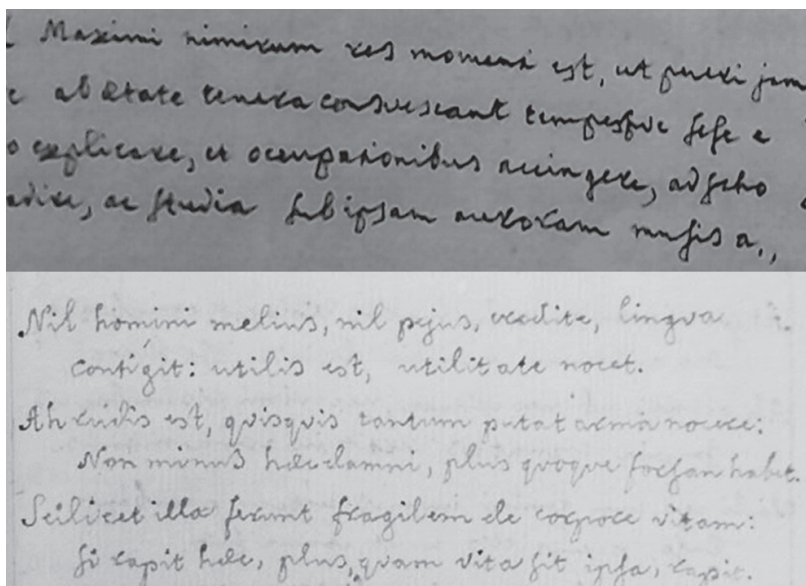 Maximi nimirum res momenti est, ut pueri jam
ab ætate tenera consuescant tempestive sese e
o explicare, et occupationibus accingere, ad scho
adire, ac studia sub ipsam auroram musis a,,
Nil homini melius, nil pejus, credite, lingva
contigit: utilis est, utilitate nocet.
Ah rudis est, quisquis tantum putat arma nocere:
Non minus hæc damni, plus quoque forsan habet.
Scilicet illa ferunt fragilem de corpore vitam:
Si rapit hæc, plus, quam vita sit ipsa, rapit.